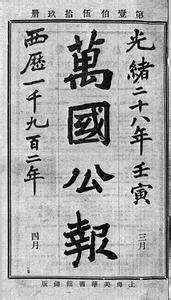 第壹伯伍拾玖册
光緒二十八年壬寅
三月
萬國公報
西歷一千九百二年
四月
上海美華書館擺版